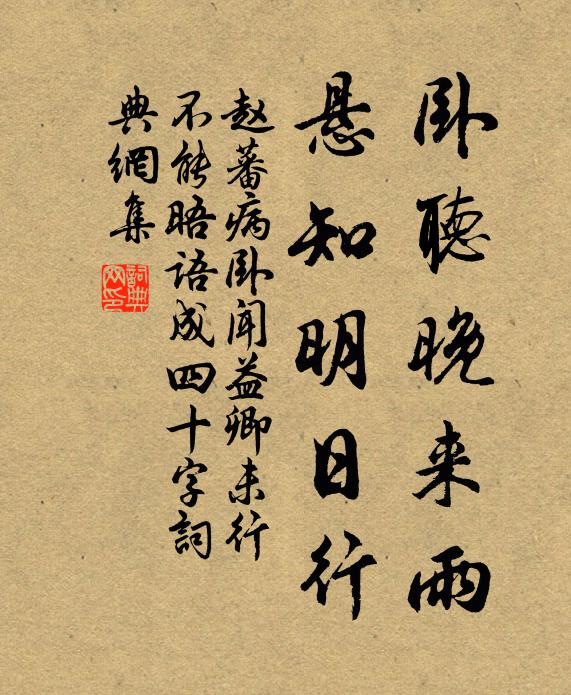 卧聽晚来雨
悬知明日行
赵蕃病卧闻益卿未行
不能晤语成四十字詞
典網集
詞典网印